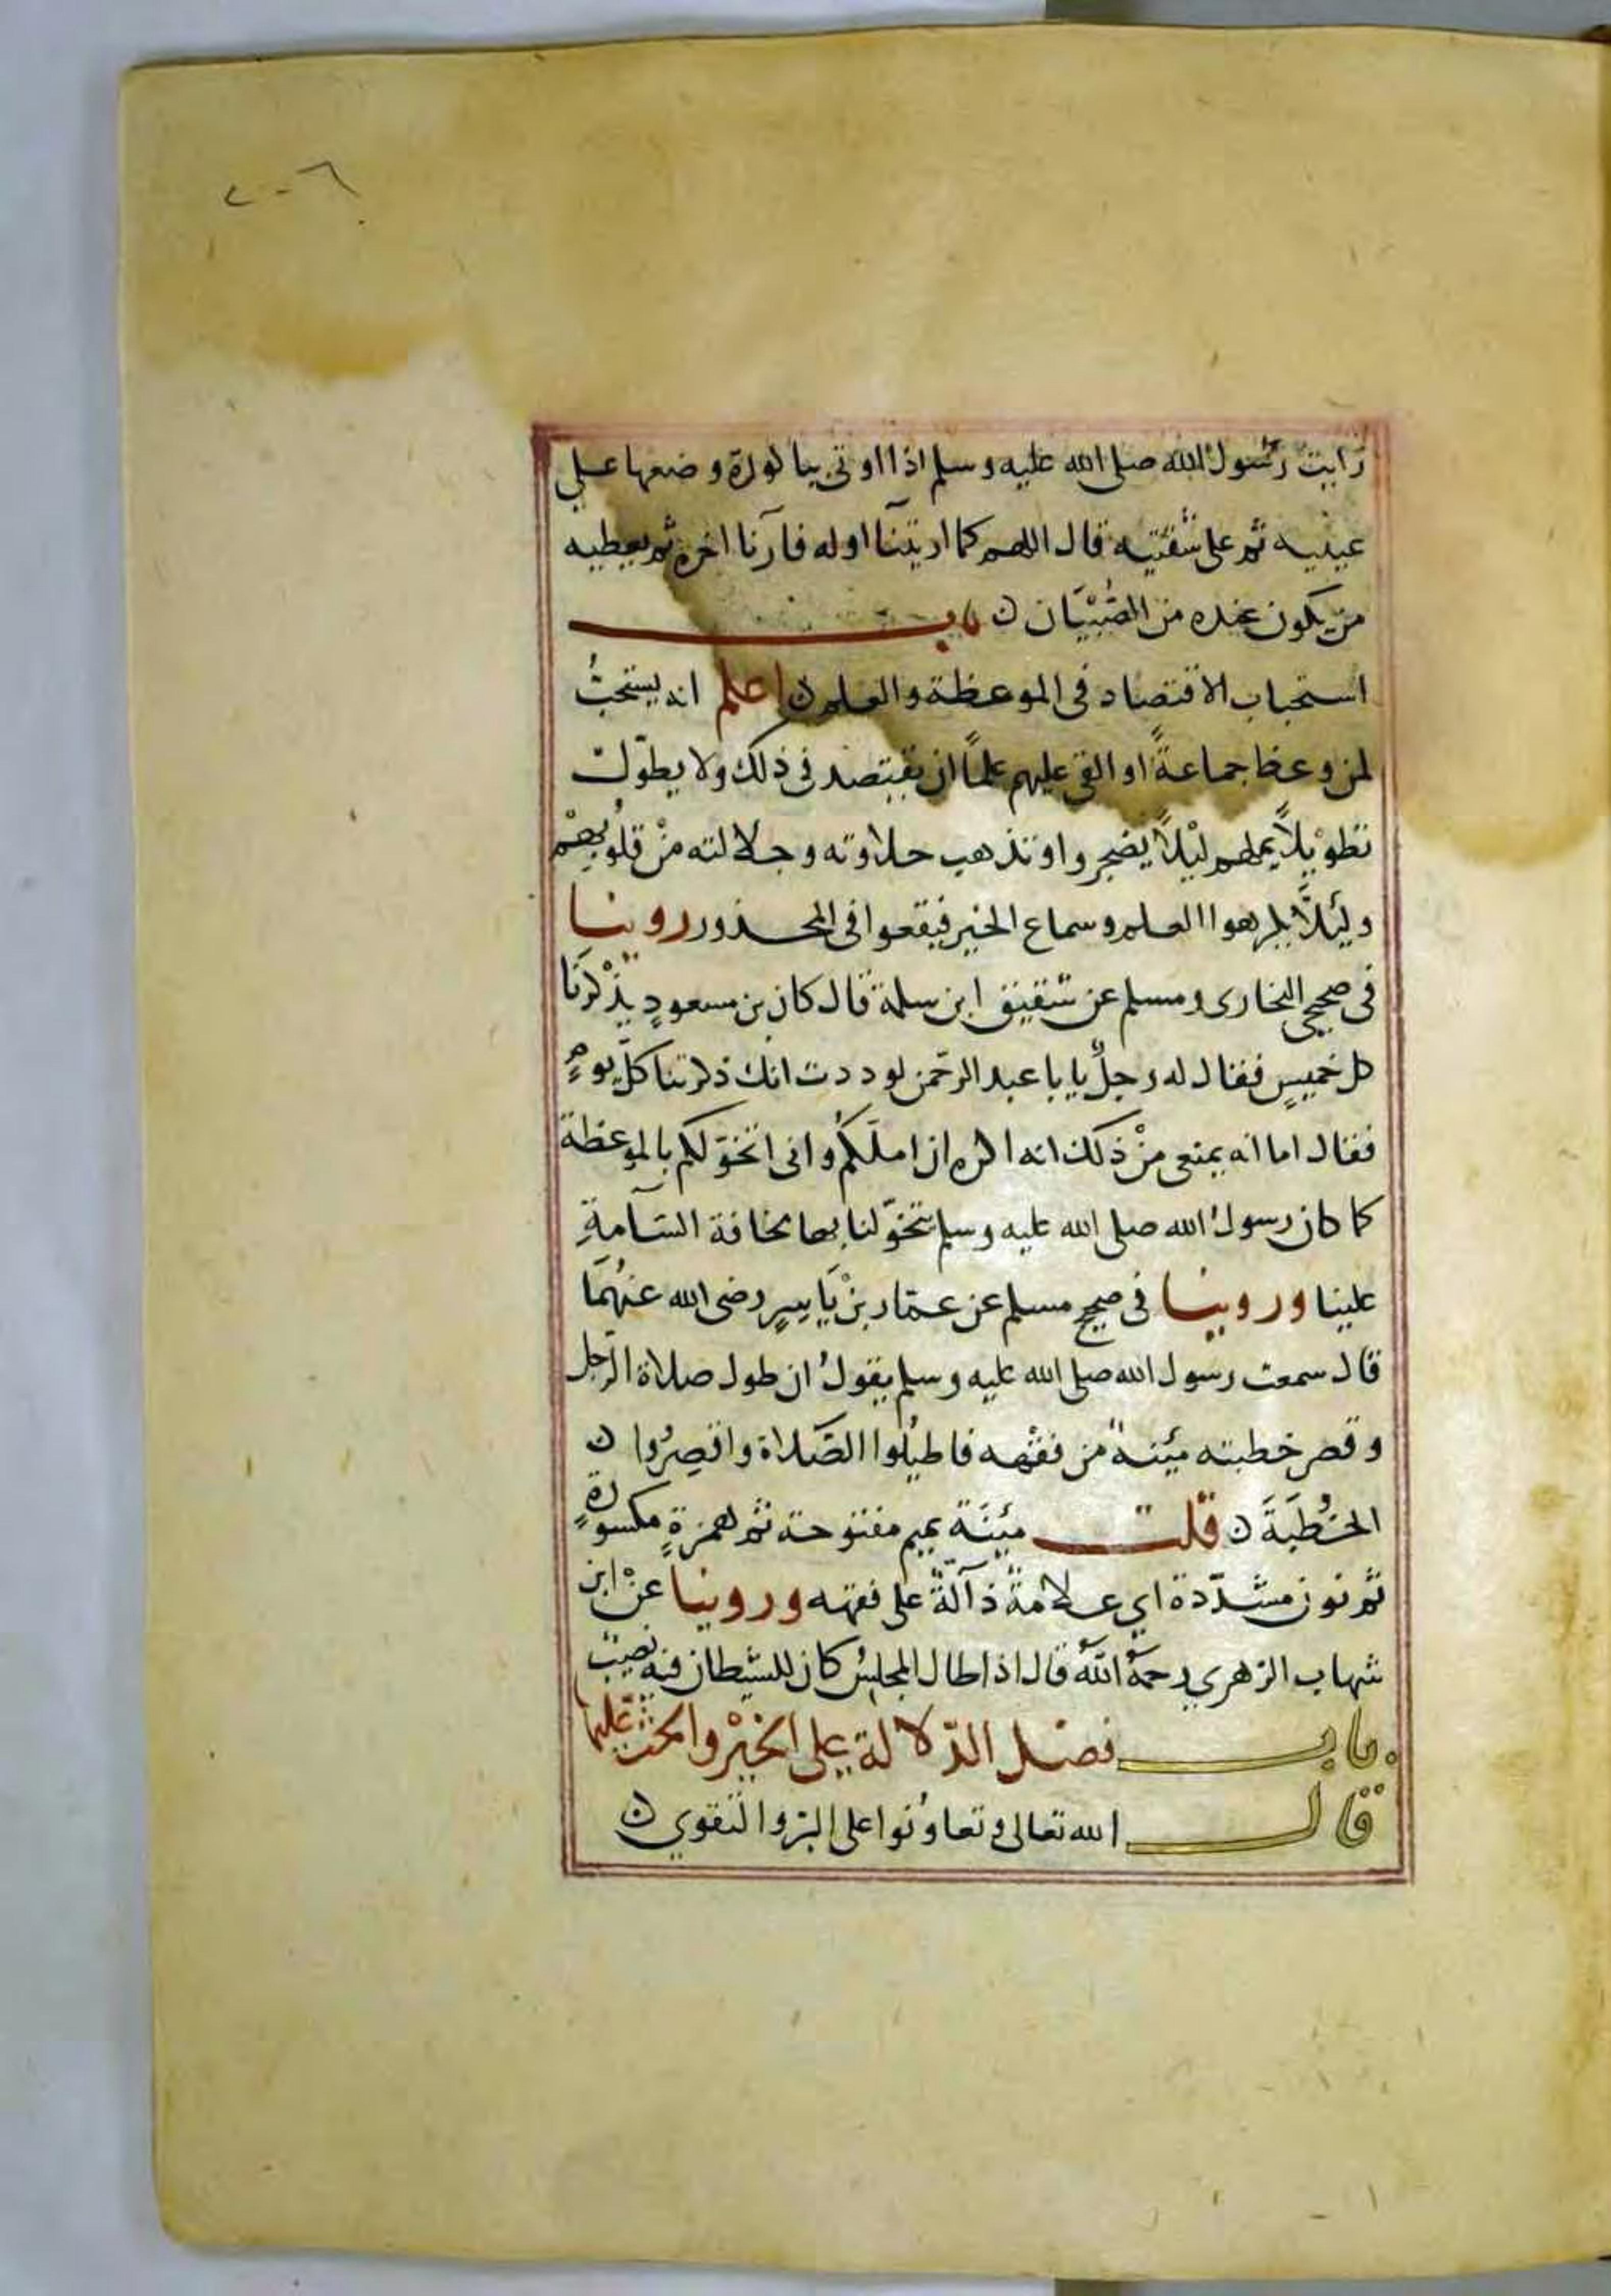 ٢٠٦
رَايت رَسُولُ الله صلى الله عليه وسلم اذا اوتى بباكورة وضعها على
عينيه ثم على شفتيه قال اللهم كما اريتنَا اوله فارنا اخره ثم يعطيه
من يكون عنده من الصِّبْيَان ن باب
استحباب الاقتصاد فى الموعظة والعلم ن اعلم انه يستحبُّ
لمن وعظ جماعةً او القى عليهم علمًا ان يقتصد فى ذلك ولا يطوّل
تطوْيلاً يملهم ليْلاً يضجروا وتذهب حلاوته وجلالته منْ قلُوبهمْ
وليَلاَّ يكرهوا العلم وسماع الخير فيقعوا فى المحذور روينا
فى صحيحى البخارى ومسلم عن شقيق ابن سلمة قال كان بن مسعودٍ يذْكرنَا
كل خميسٍ فقال له رجلٌ يا با عبد الرحمَن لوددت انك ذكرتنا كلَّ يومٍ
فقال اما انه يمنعنى منْ ذلك انه اكره ان املَّكمُ وانى اتخوّلكم بالموعظة
كما كان رسولُ الله صلى الله عليه وسلم يتخوّلنا بها مخافة السَّآمةِ
علينا وروينا فى صحيح مسلم عن عمّار بنْ يَاسِرٍ رضى الله عنْهُمَا
قال سمعت رسول الله صلى الله عليه وسلم يقولُ ان طول صلاة الرّجل
وقصر خطبته مئِنةٌ من فقْهه فاطيْلوا الصَّلاة واقصِرُوا ن
الخُطْبَةَ ن قلت مئِنَّة بميم مفتوحة ثم همزةٍ مكسورةٍ
ثم نون مشدّدة اى علامةٌ دَآلّةٌ على فقهه وروينا عنْ ابن
شهاب الزهري رحمهُ اللَّهُ قال اذا طال المجلسُ كان للشّيطان فيه نصيبٌ
باب فضل الدّلالة على الخيْر والحثّ عليها
قال الله تعالى وتعاوَنُوا على البرّ والتّقوي ن